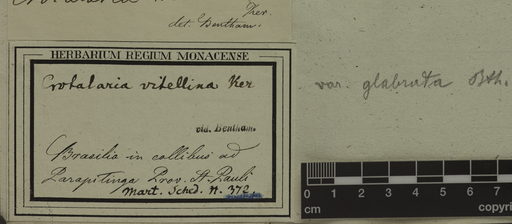 Ker.
det. Bentham.
HERBARIUM REGIUM MONACENSE
Crotalaria vitellina Ker
vid. Bentham.
var. glabrata Bth.
Brasilia in collibus ad
Parapitinga Prov. St. Pauli
Mart. Sched. N. 372
0 1 2 3 4 5 6 7
cm
copyri